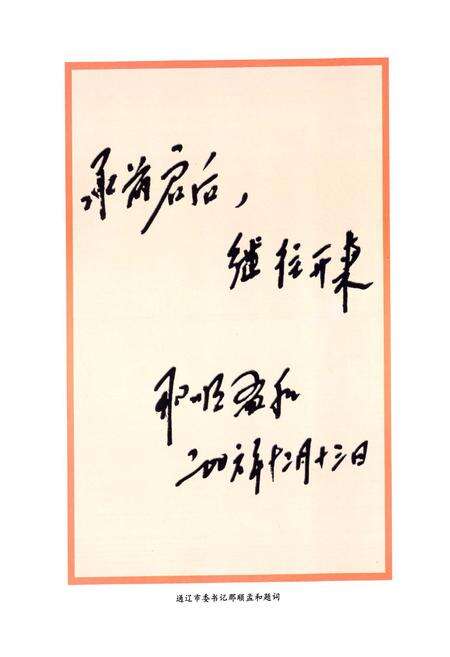 承前启后，
继往开来
那顺孟和
二〇〇六年十二月十三日
通辽市委书记那顺孟和题词